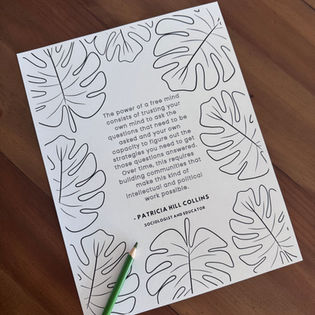 The power of a free mind
consists of trusting your
own mind to ask the
questions that need to be
asked and your own
capacity to figure out the
strategies you need to get
those questions answered.
Over time, this requires
building communities that
make this kind of
intellectual and political
work possible.
- PATRICIA HILL COLLINS
SOCIOLOGIST AND EDUCATOR